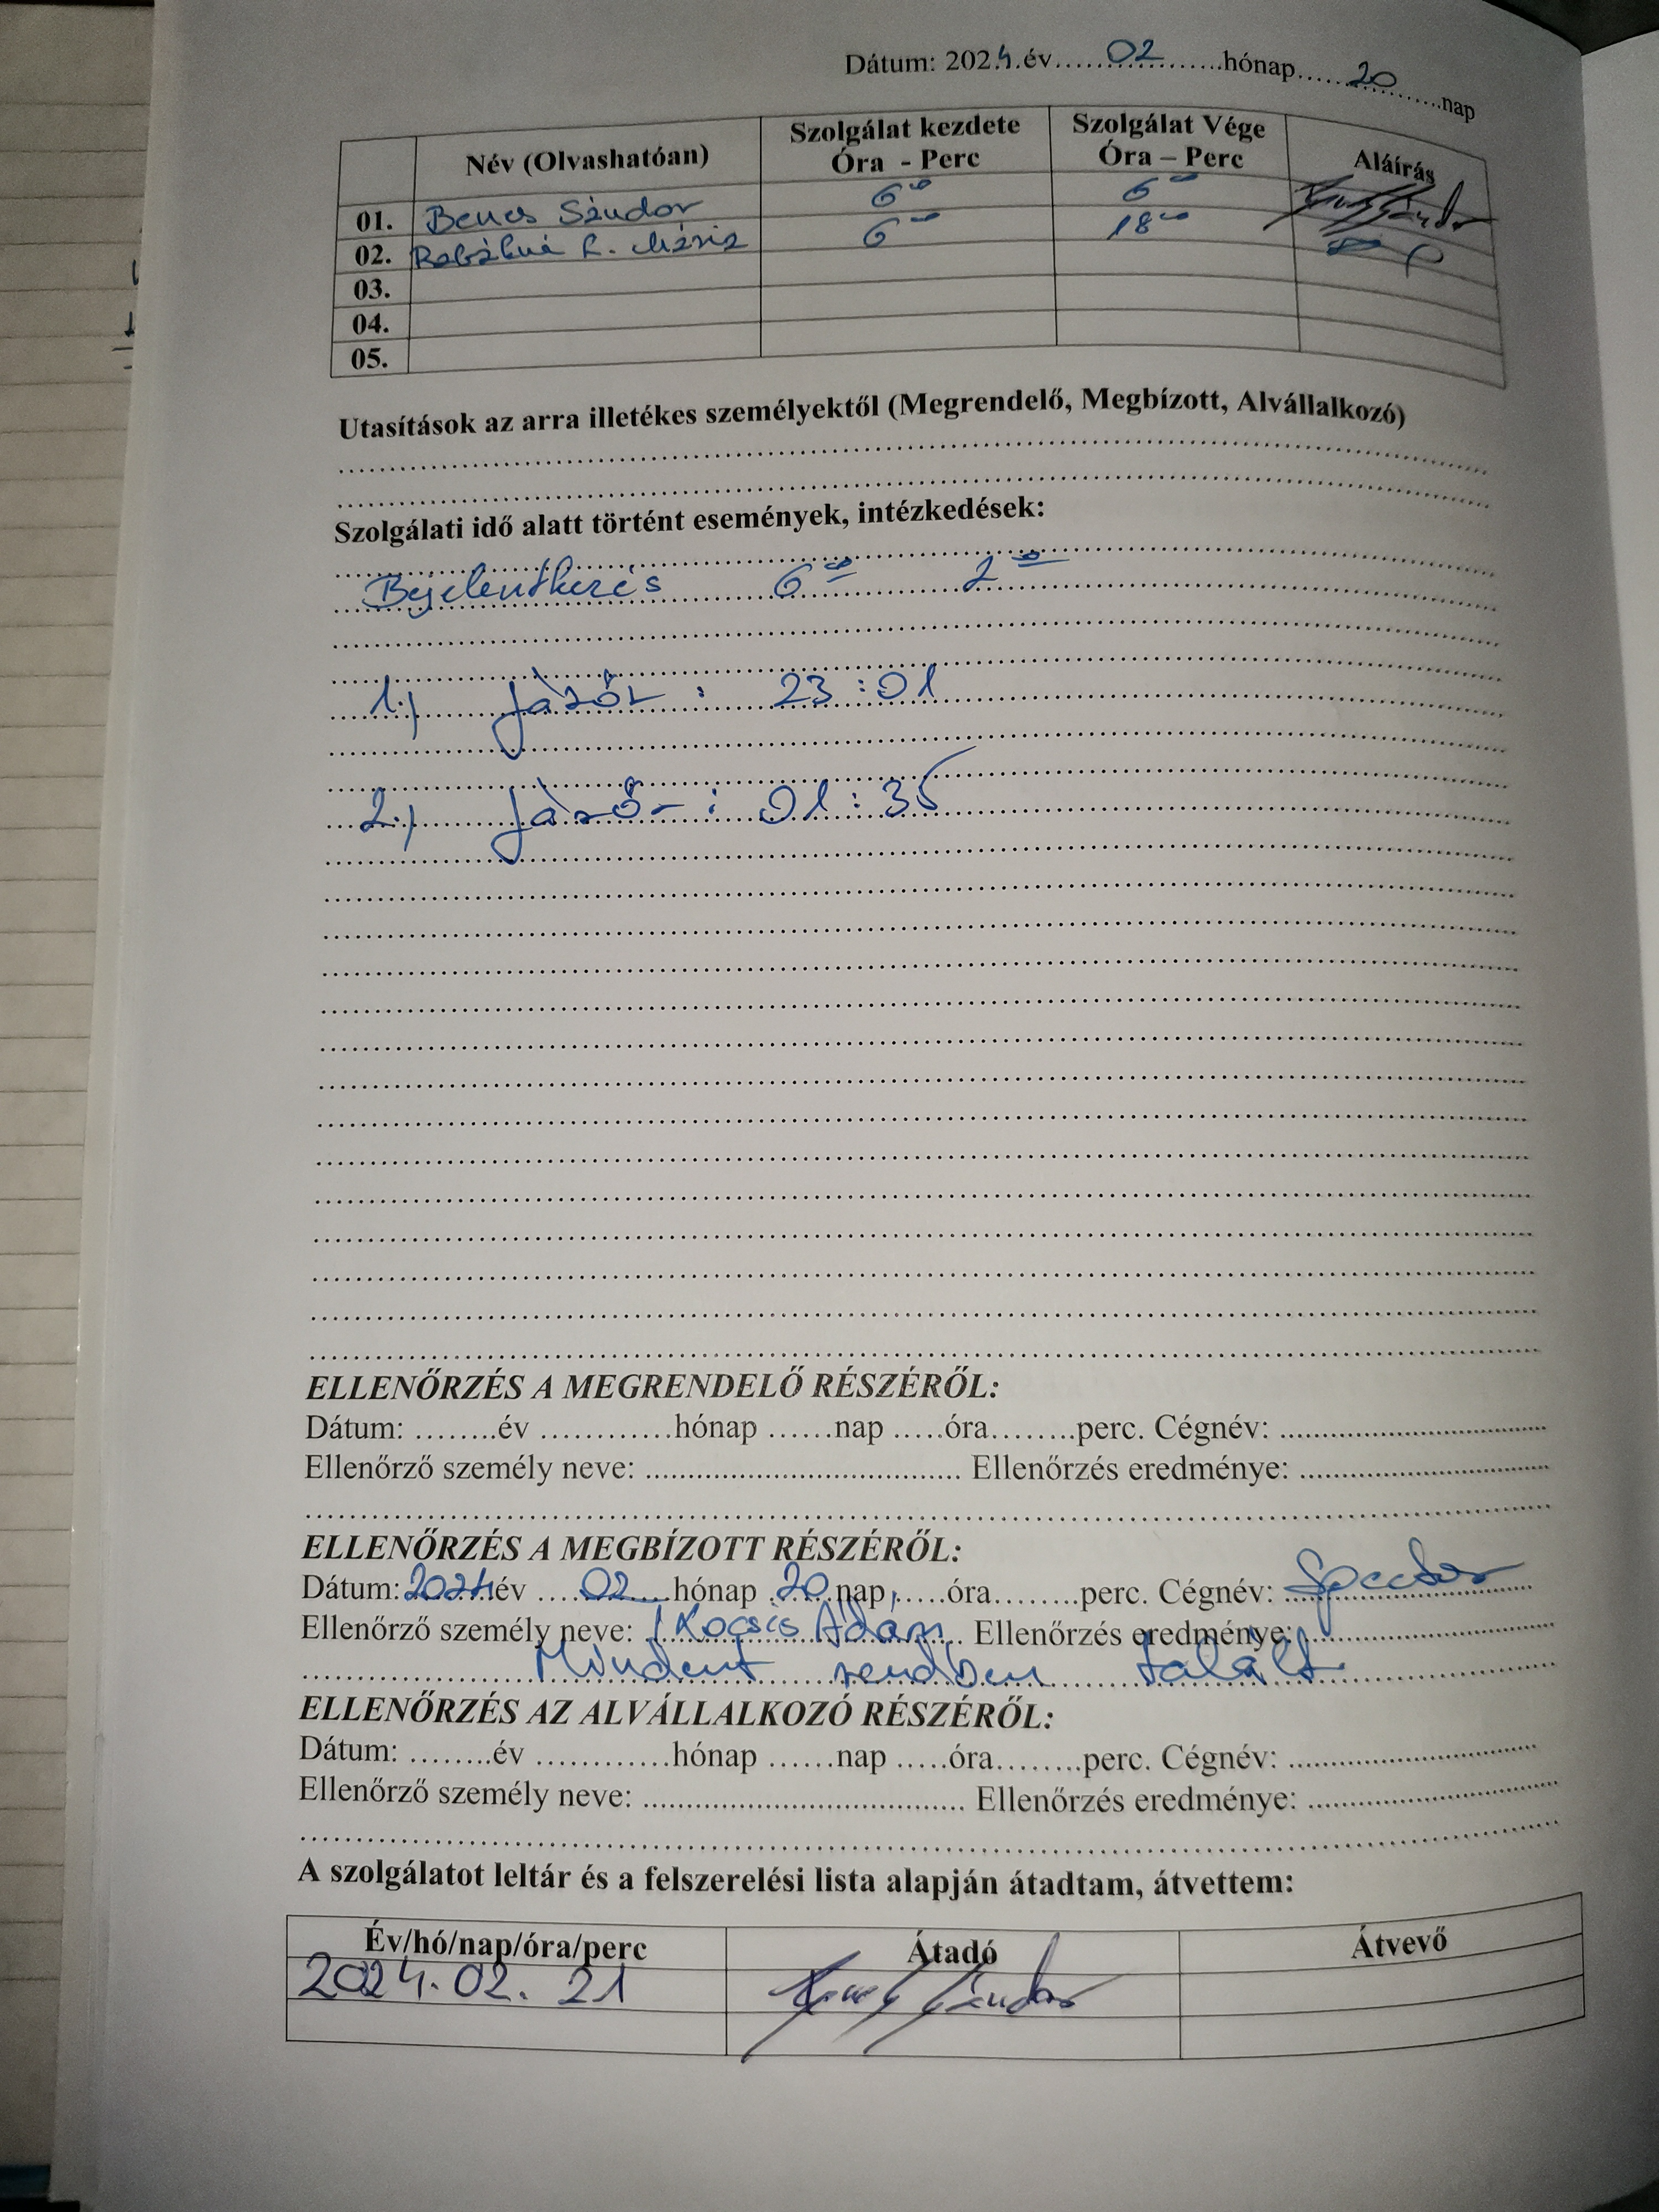 Dátum: 2024.év......02......hónap......20......nap
Név (Olvashatóan) Szolgálat kezdete Óra - Perc Szolgálat Vége Óra – Perc Aláírás
01. Bencs Sándor 6⁰⁰ 6⁰⁰
02. Mária 6⁰⁰ 18⁰⁰
03.
04.
05.
Utasítások az arra illetékes személyektől (Megrendelő, Megbízott, Alvállalkozó)
Szolgálati idő alatt történt események, intézkedések:
Bejelentkezés 6⁰⁰ 2⁰⁰
1.) járőr : 23:01
2.) járőr : 01:35
ELLENŐRZÉS A MEGRENDELŐ RÉSZÉRŐL:
Dátum: ........év ............hónap ......nap .....óra........perc. Cégnév: ..............................
Ellenőrző személy neve: .................................... Ellenőrzés eredménye: ..............................
ELLENŐRZÉS A MEGBÍZOTT RÉSZÉRŐL:
Dátum: 2024 év ....02....hónap .20.nap, .....óra........perc. Cégnév:
Ellenőrző személy neve: Kocsis Ádám Ellenőrzés eredménye:
Mindent rendben talált
ELLENŐRZÉS AZ ALVÁLLALKOZÓ RÉSZÉRŐL:
Dátum: ........év ............hónap ......nap .....óra........perc. Cégnév: ..............................
Ellenőrző személy neve: .................................... Ellenőrzés eredménye: ..............................
A szolgálatot leltár és a felszerelési lista alapján átadtam, átvettem:
Év/hó/nap/óra/perc Átadó Átvevő
2024.02. 21